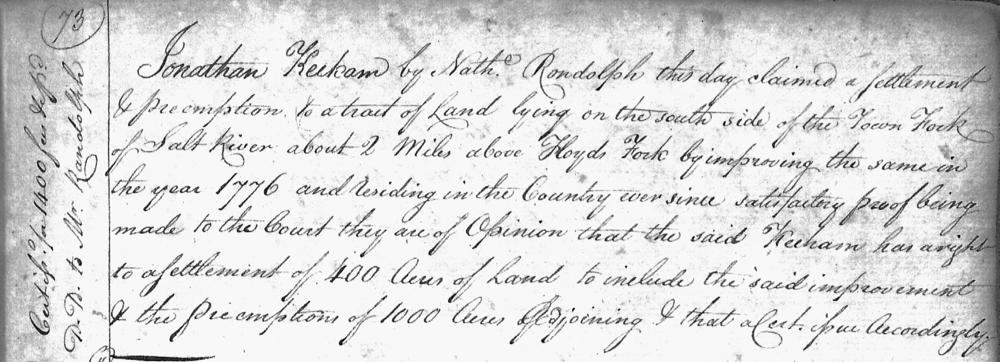 73
Certif.t for 1400 for & fr.d
D.D. to Mr. Randolph
Jonathan Keekam by Nath.e Rondolph this day claimed a settlement
& preemption to a tract of Land lying on the south side of the Town Fork
of Salt River about 2 Miles above Floyds Fork by improving the same in
the year 1776 and residing in the Country ever since satisfactory proof being
made to the Court they are of Opinion that the said Keeham has a right
to a settlement of 400 Acres of Land to include the said improvement
& the preemptions of 1000 Acres Adjoining & that a Cert. issue Accordingly